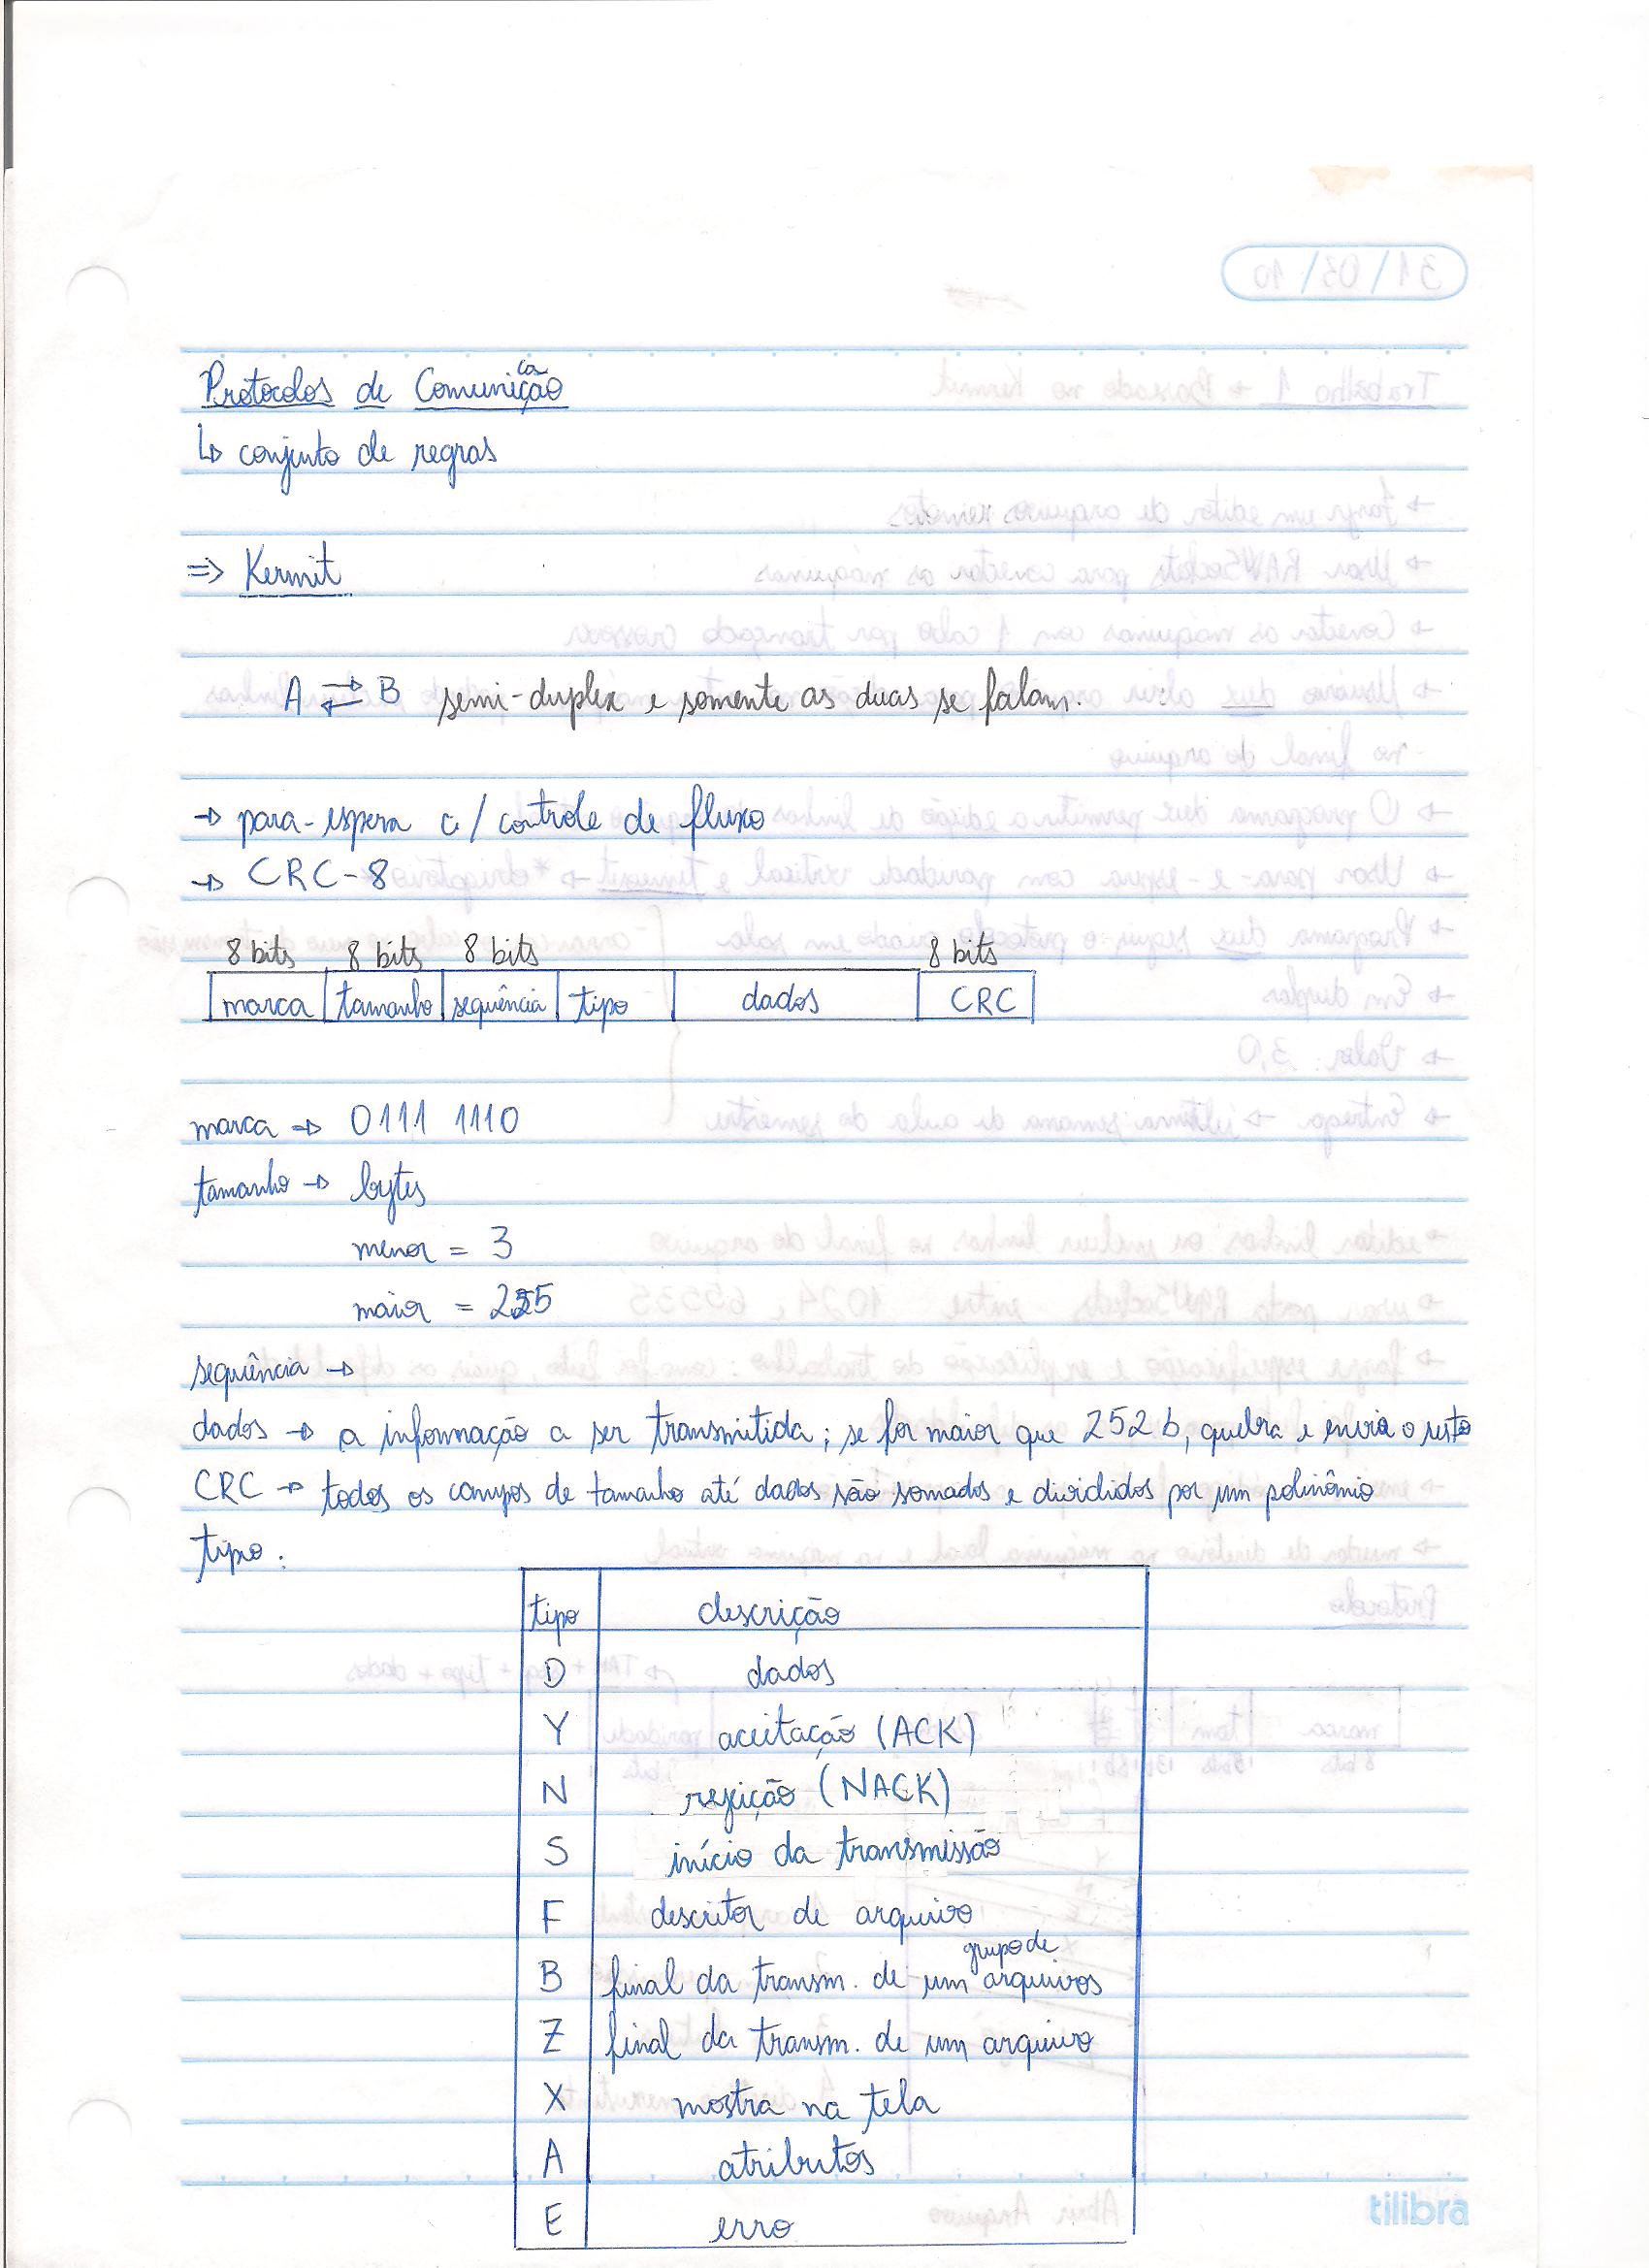 Protocolos de Comunicação
↳ conjunto de regras
=> Kermit
A ⇄ B semi-duplex e somente as duas se falam.
→ para-espera c/ controle de fluxo
→ CRC-8
8 bits 8 bits 8 bits 8 bits
marca tamanho sequência tipo dados CRC
marca → 0111 1110
tamanho → bytes
menor = 3
maior = 255
sequência →
dados → a informação a ser transmitida; se for maior que 252 b, quebra e envia o resto
CRC → todos os campos de tamanho até dados são somados e divididos por um polinômio
tipo:
tipo descrição
D dados
Y aceitação (ACK)
N rejeição (NACK)
S início da transmissão
F descritor de arquivo
B final da transm. de um grupo de arquivos
Z final da transm. de um arquivo
X mostra na tela
A atributos
E erro
tilibra